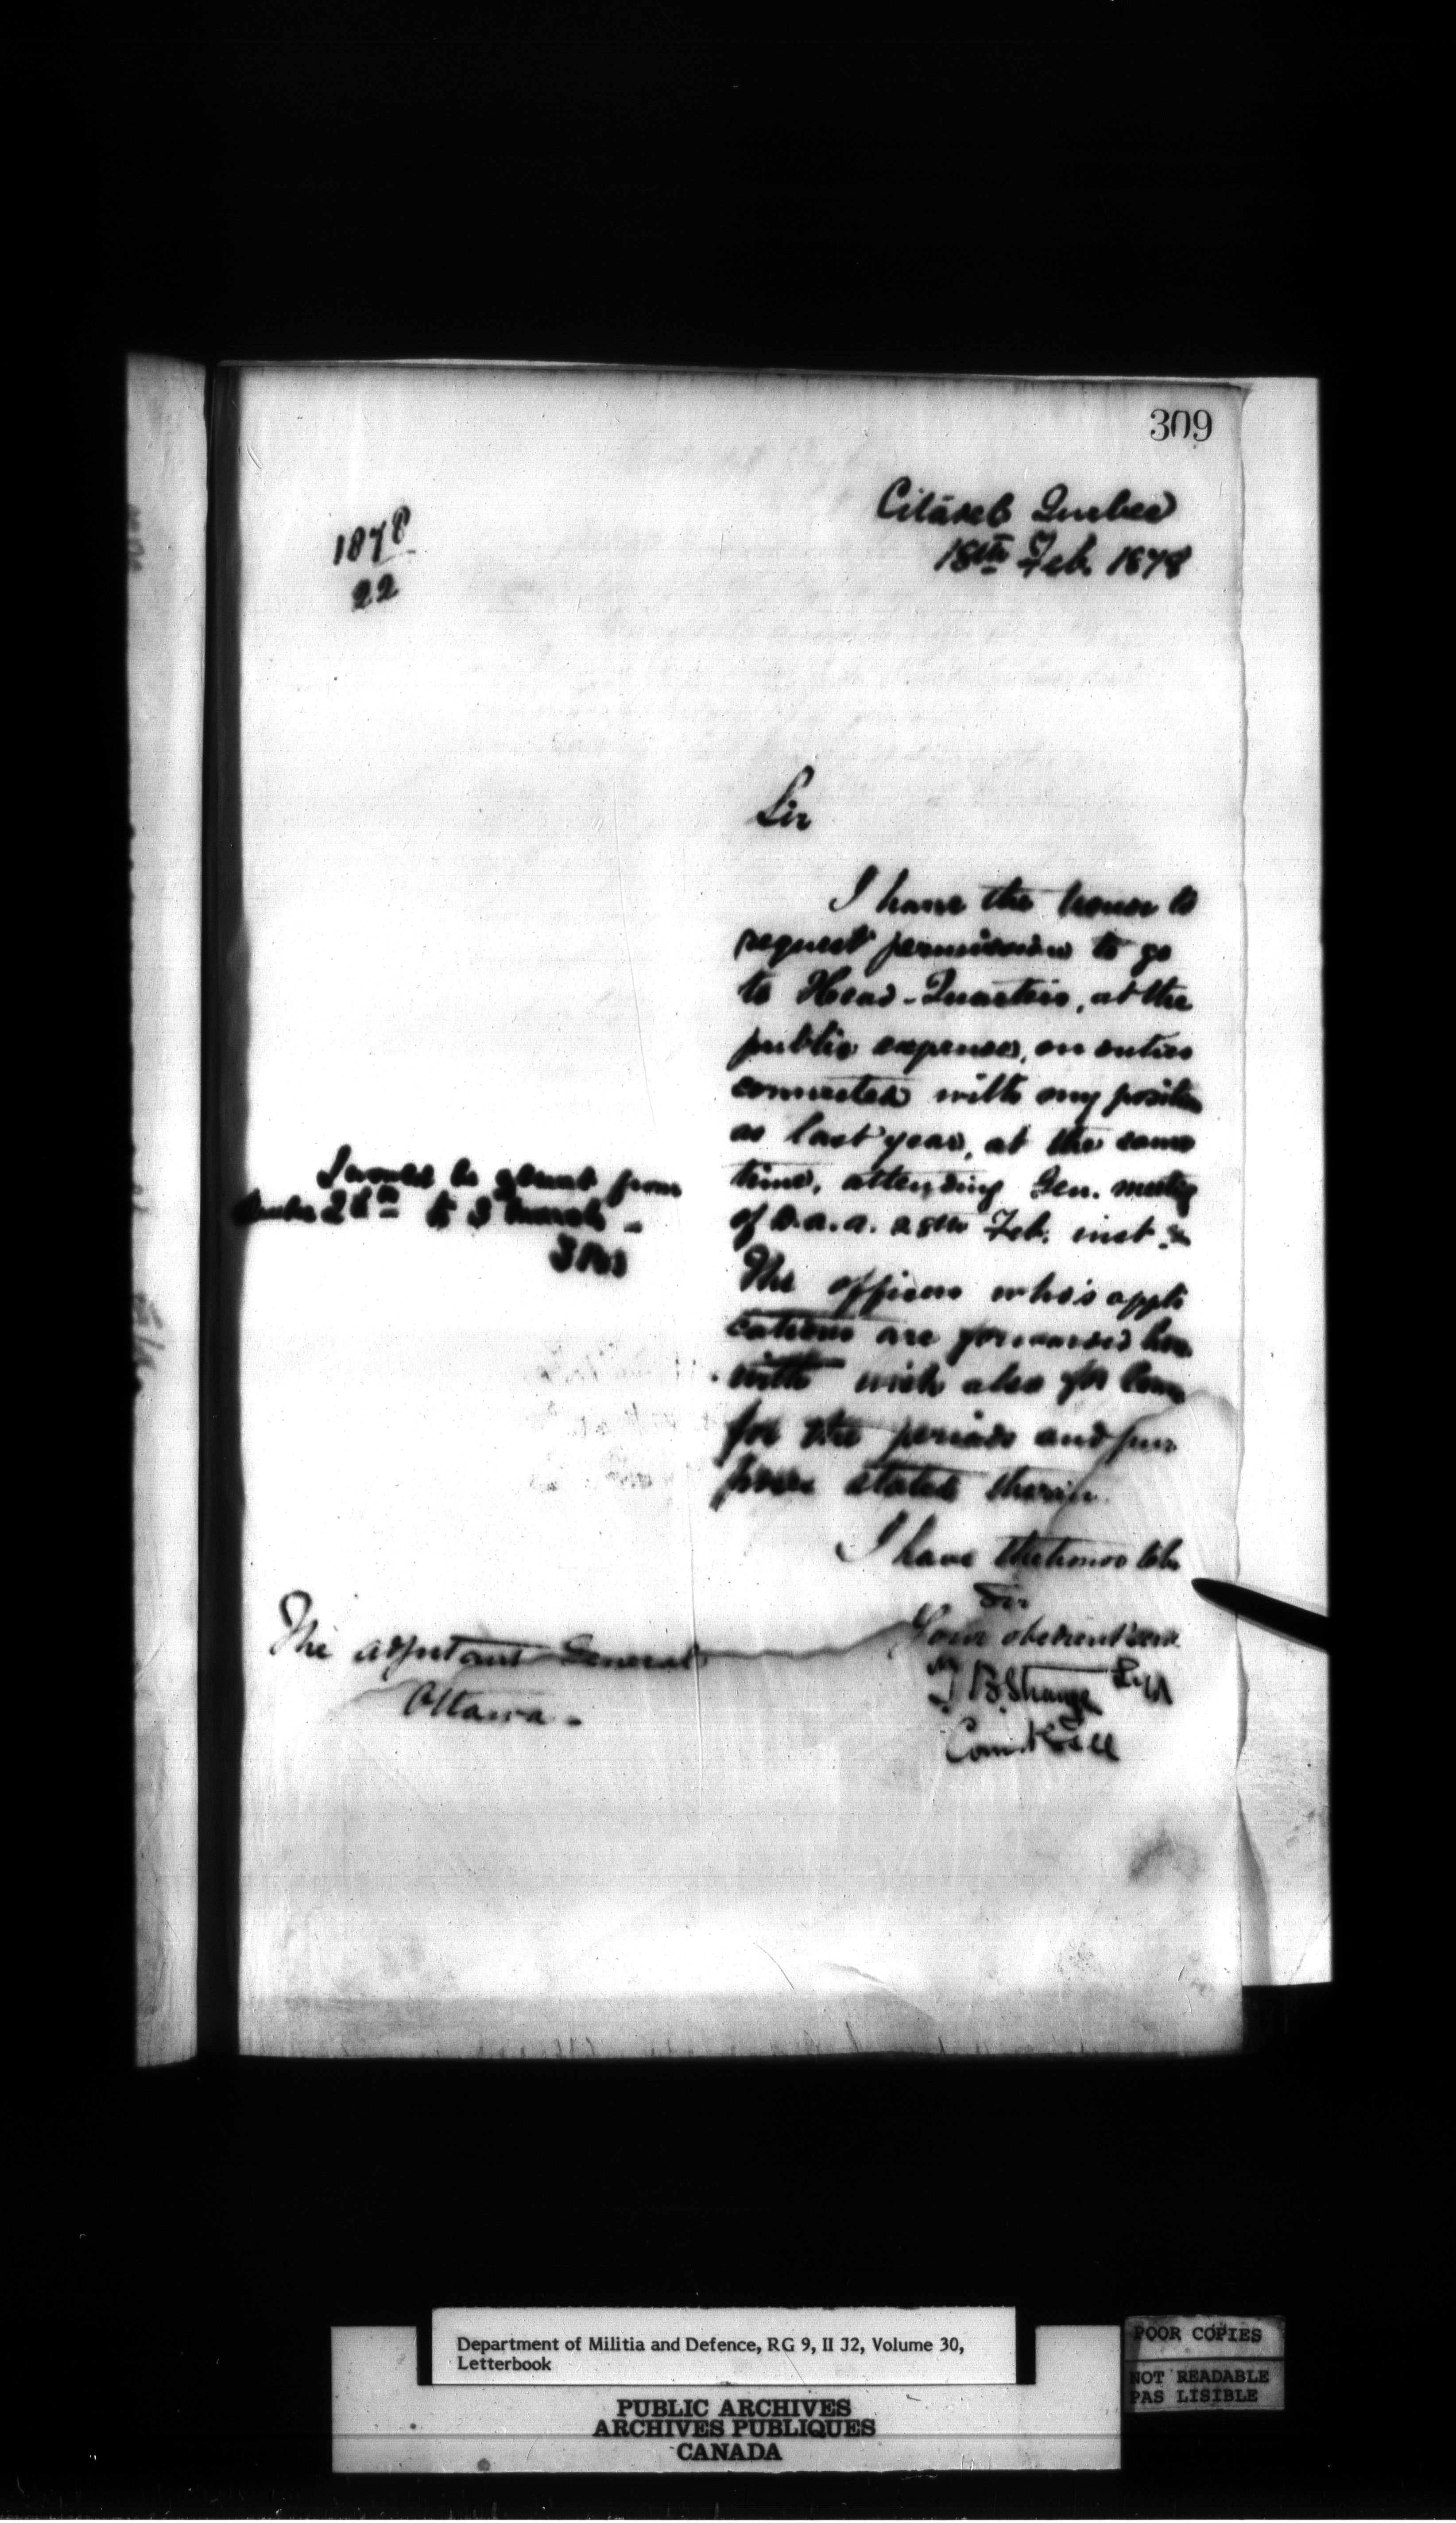 309
Citadel Quebec
18th Feb. 1878
1878
22
Sir
I have the honor to
request permission to go
to Head-Quarters, at the
public expense, on duties
connected with my position
as last year, at the same
time, attending Gen. meeting
of D.A.A. 28th Feb. inst. &
The officers who's appli
cations are forwarded here
with wish also for leave
for the periods and pur
poses stated therein.
I would be absent from
Quebec 26th to 3 March -
TBS
I have the honor to be
Sir
Your obedient serv.
T B Strange
The Adjutant General
Ottawa -
Department of Militia and Defence, RG 9, II J2, Volume 30,
Letterbook
PUBLIC ARCHIVES
ARCHIVES PUBLIQUES
CANADA
POOR COPIES
NOT READABLE
PAS LISIBLE